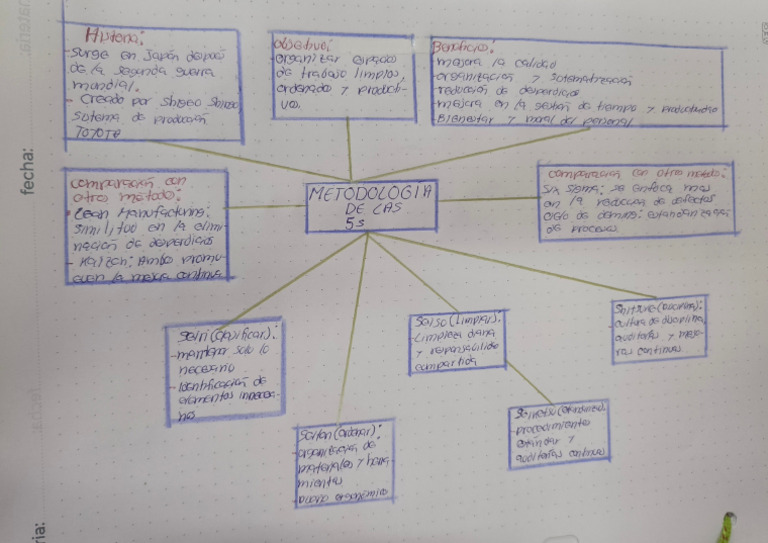 fecha:
Historia:
-surge en Japón después
de la segunda guerra
mundial.
- Creado por Shigeo Shingo
sistema de producción
TOYOTA
objetivo:
-organizar espacios
de trabajo limpios,
ordenado y producti-
vo.
Beneficios:
-mejora la calidad
-organización y sistematización
-reducción de desperdicios
-mejora en la gestión de tiempo y productividad
-Bienestar y moral del personal
comparación con
otros metodo:
- Lean Manufacturing:
similitud en la elimi-
nación de desperdicios
- Kaizen: Ambo promu-
even la mejora continua
METODOLOGIA
DE LAS
5s
comparación con otros metodo:
six sigma: se enfoca mas
en la reducción de defectos
ciclo de deming: estandarización
de procesos.
Seiri (clasificar):
-mantener solo lo
necesario
-Identificación de
elementos innecesa-
rios
Seiton (ordenar):
-organización de
materiales y herra-
mientas
Seiso (Limpiar):
-Limpieza diaria
y responsabilidad
compartida
-procedimientos
estándar y
auditorías continuas
Shitsuke (Disciplina):
-cultura de disciplina,
auditorías y mejo-
ras continuas.